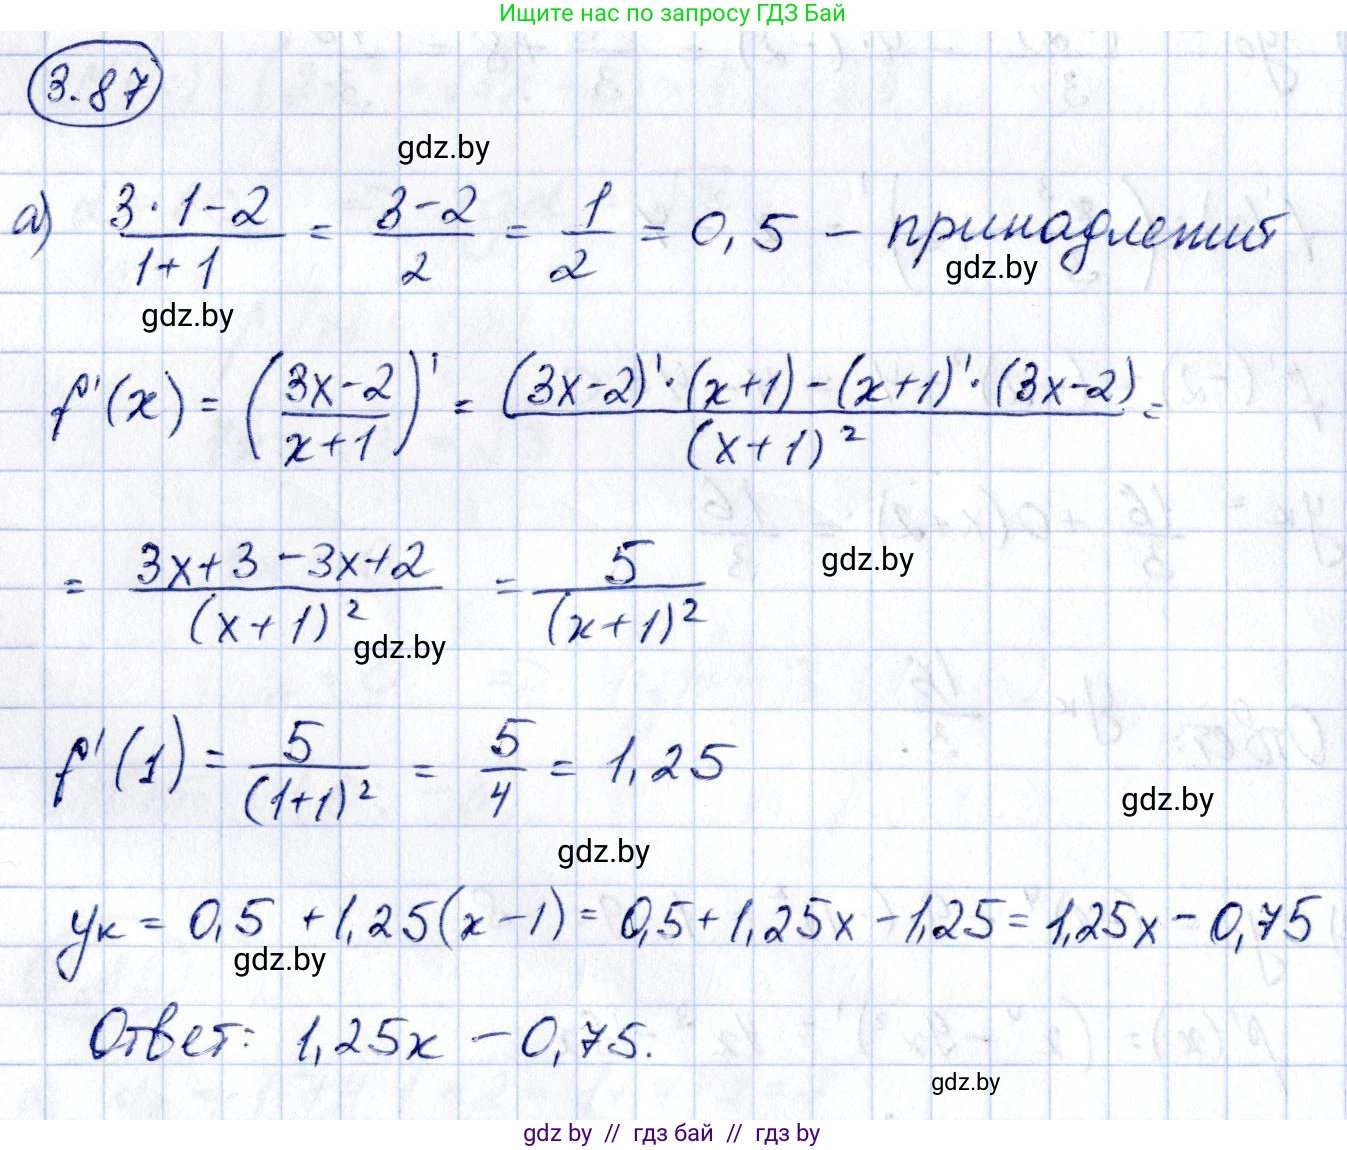 Ищите нас по запросу ГДЗ Бай
3.87
gdz.by
а) (3·1-2)/(1+1) = (3-2)/2 = 1/2 = 0,5 – принадлежит
gdz.by
gdz.by
f'(x) = ((3x-2)/(x+1))' = ((3x-2)'·(x+1)-(x+1)'·(3x-2))/(x+1)² =
= (3x+3-3x+2)/(x+1)² = 5/(x+1)²
gdz.by
gdz.by
f'(1) = 5/(1+1)² = 5/4 = 1,25
gdz.by
gdz.by
yк = 0,5 + 1,25(x-1) = 0,5 + 1,25x - 1,25 = 1,25x - 0,75
gdz.by
Ответ: 1,25x - 0,75.
gdz.by
gdz by // гдз бай // гдз by